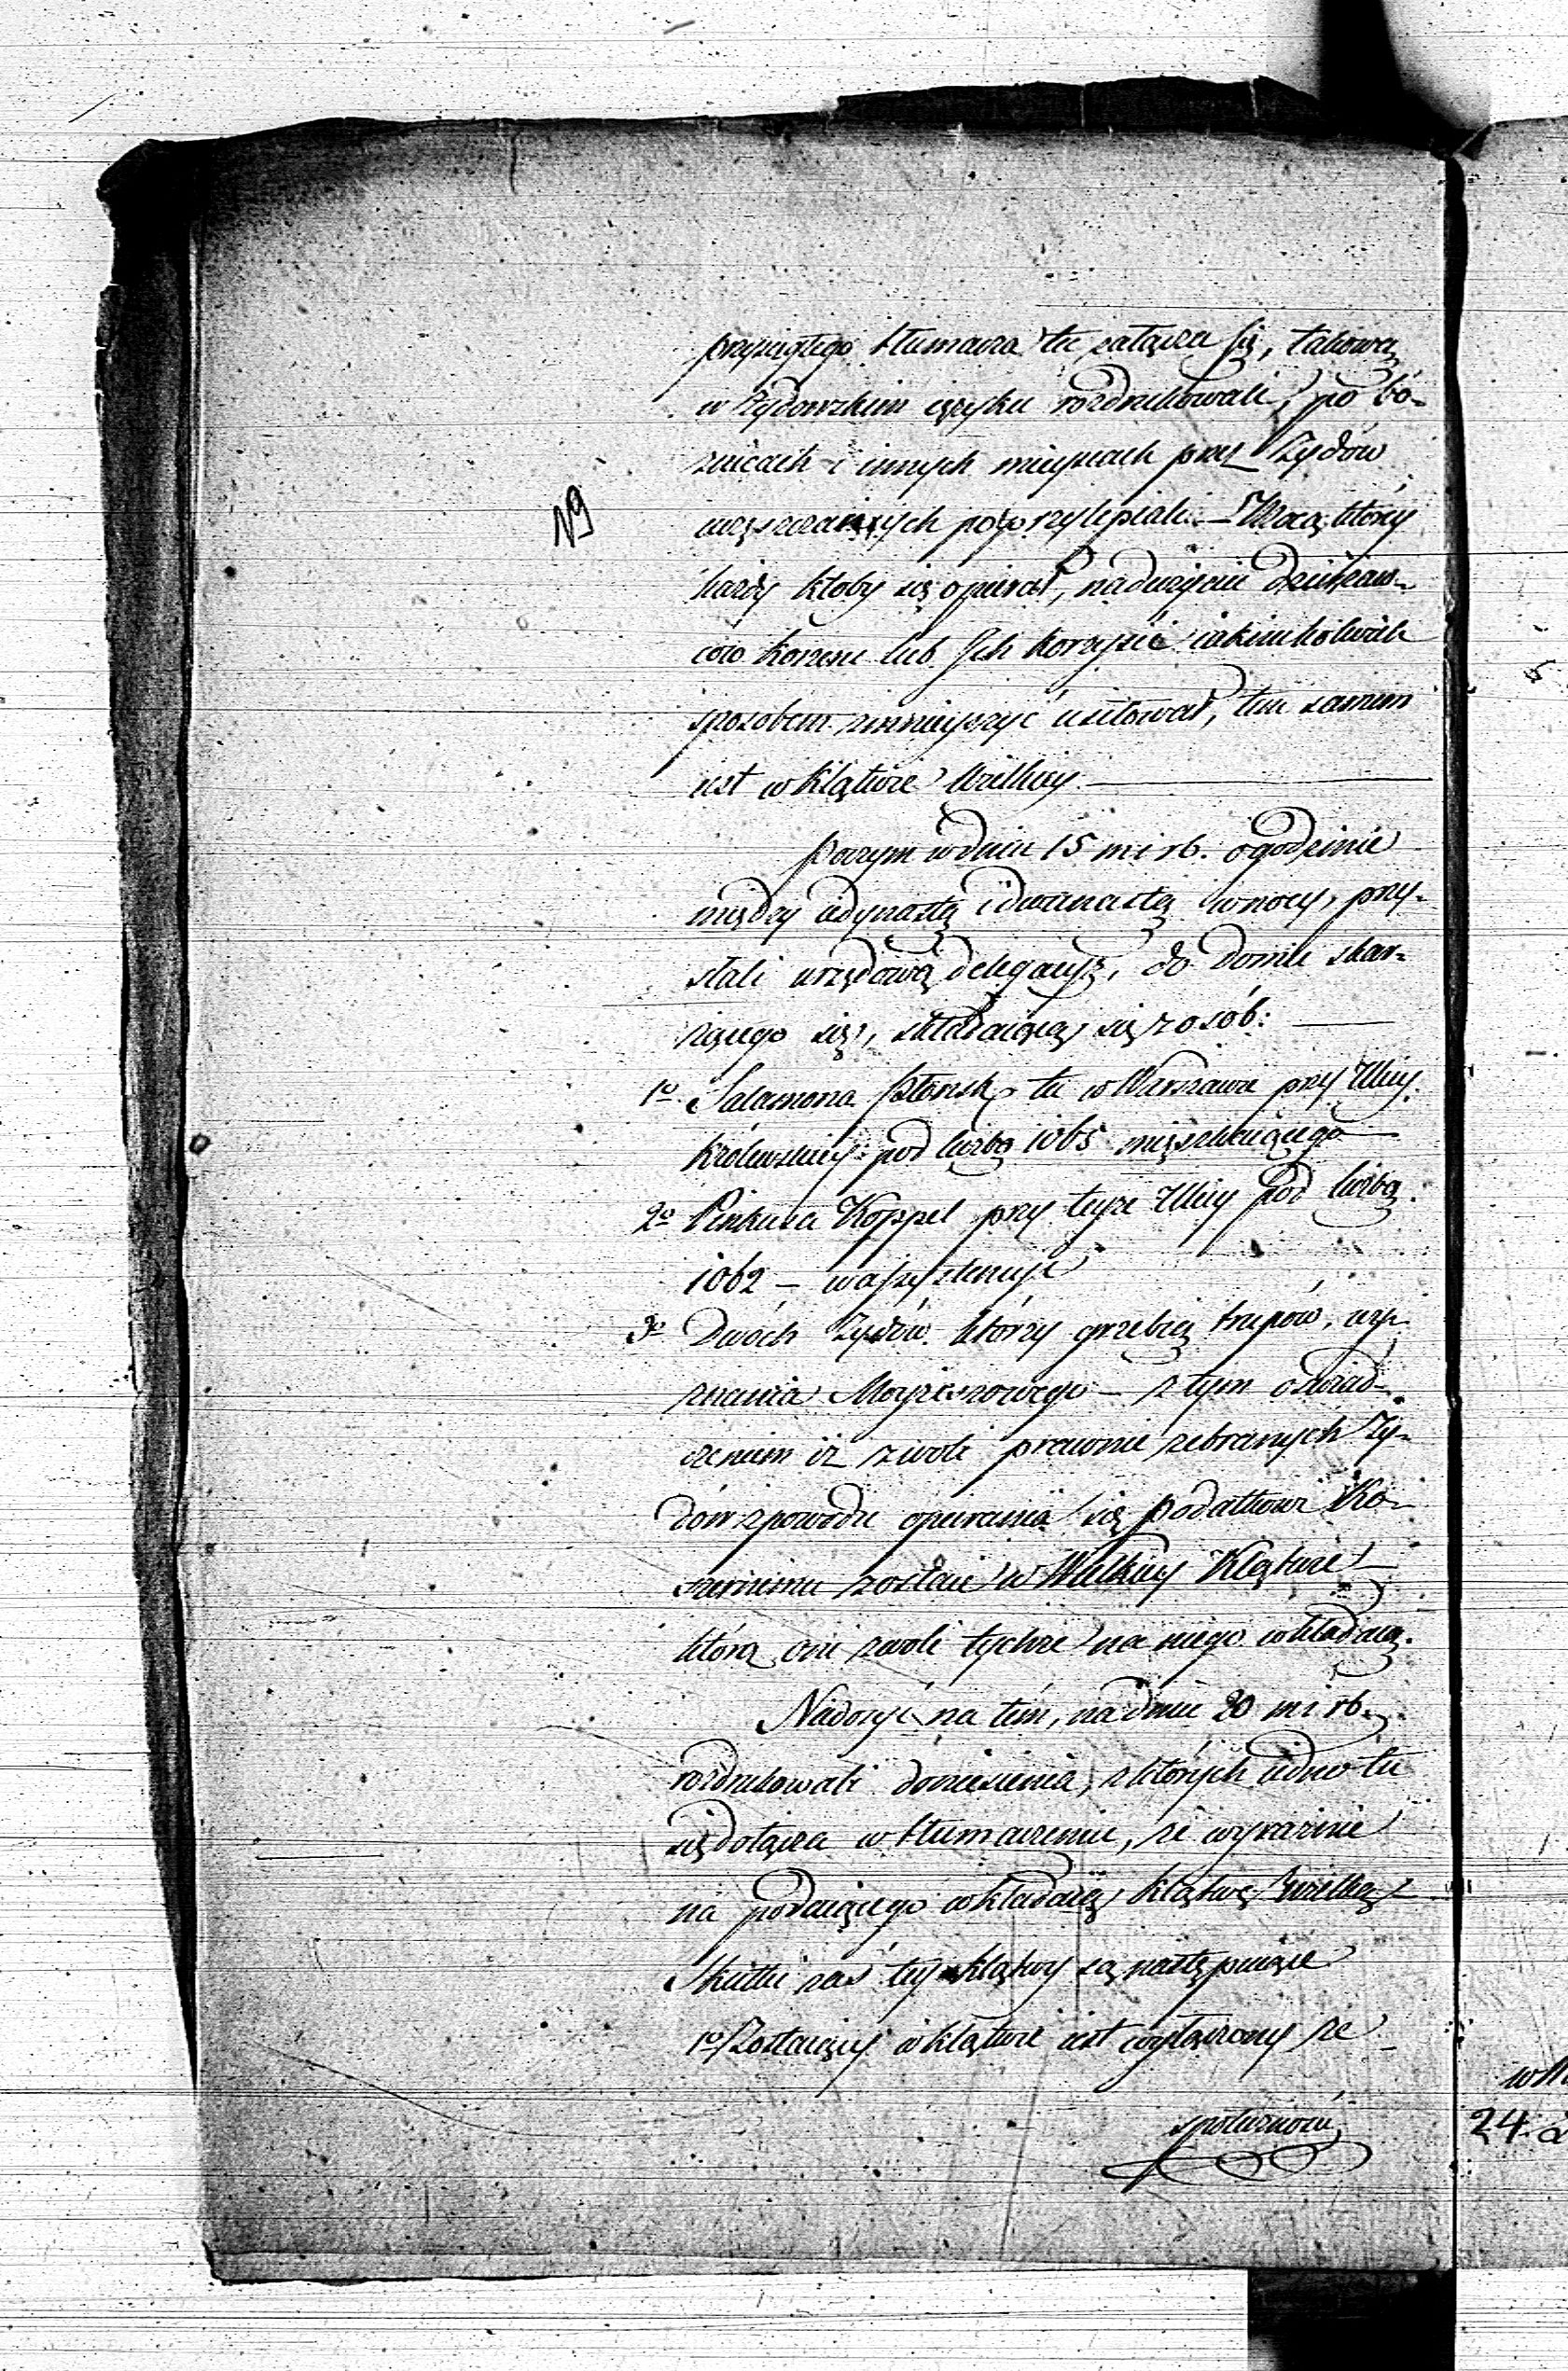 przysięgłego tłumacza tu załącza się, takową
w Żydowskim ięzyku rozdrukowali, po bó-
znicach i innych mieyscach przez Żydów
uczęszczanych poprzylepiali – Mocą którey
każdy ktoby się opierał, nadużyciu dzierżaw-
ców Koszeru lub Ich korzyść iakimkolwiek
sposobem zmnieyszyć usiłował, tem samem
iest w klątwie Wielkiey.
Poczym w dniu 15 m i rb. o godzinie
między iedynastą i dwanastą w nocy, przy-
słali urzędową delegacyą, do domu skar-
żącego się, składaiącą się z osób:
1o. Salamona Płońsk tu w Warszawie przy Ulicy
Królewskiey pod liczbą 1065 mięszkaiącego
2o Pinkusa Koppel przy teyże Ulicy pod liczbą
1062 –
3o Dwóch Żydów którzy grzebią trupów, wy-
znania Moyżeszowego – z tym oświad-
czeniem iż z woli prawnie zebranych Ży-
dów z powodu opierania się podatkowi Ko-
szernemu zostaie w Wielkiey Klątwie!
którą oni z woli tychże na niego wkładaią.
Niedosyć na tém, na dniu 20 m i rb.
rozdrukowali doniesienia, z których iedno tu
się dołącza w tłumaczeniu, że wyraźnie
na podaiącego wkładaią klątwę wielką
Skutki zaś tey klątwy są następuiące
1o Zostaiący w klątwie iest wyłączony ze
społeczności
19
24.